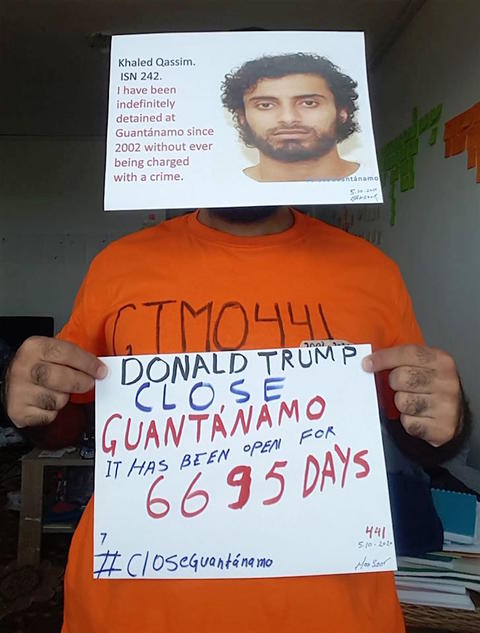 Khaled Qassim.
ISN 242.
I have been
indefinitely
detained at
Guantánamo since
2002 without ever
being charged
with a crime.
#CloseGuantánamo
5.10.2020
GTMO441
DONALD TRUMP
CLOSE
GUANTÁNAMO
IT HAS BEEN OPEN FOR
6695 DAYS
441
5.10.2020
Mansoor
7
#CloseGuantánamo